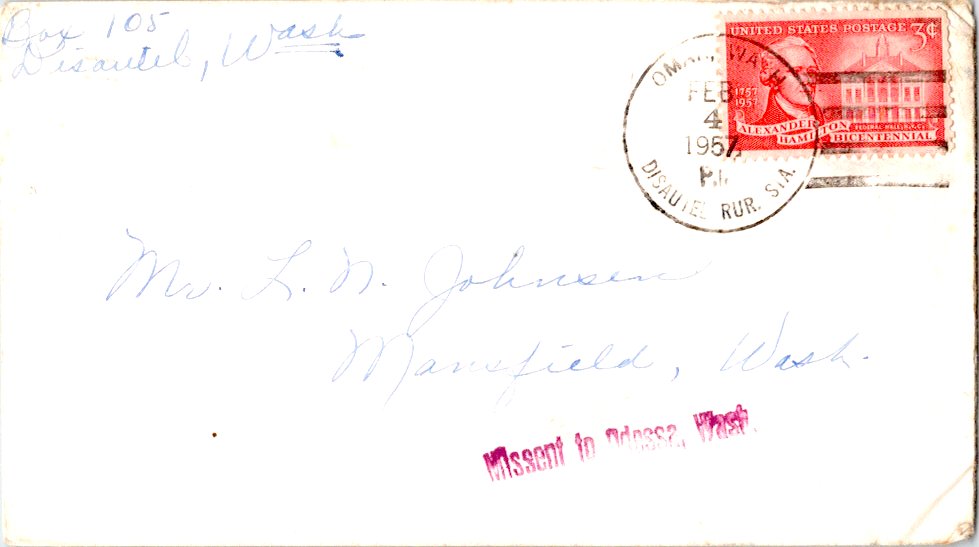 Box 105
Disautel, Wash
UNITED STATES POSTAGE 3¢
1757
1957
ALEXANDER
HAMILTON
BICENTENNIAL
OMAK, WASH
FEB
4
1957
P.M.
DISAUTEL RUR. STA.
Mr. L. N. Johnsen
Mansfield, Wash.
Missent to Odessa, Wash.